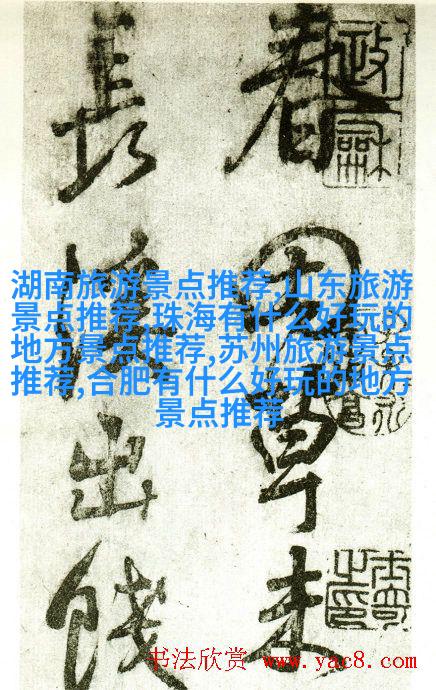 草
未
長
出
湖南旅游景点推荐,山东旅游
景点推荐,珠海有什么好玩的
地方景点推荐,苏州旅游景点
推荐,合肥有什么好玩的地方
景点推荐
书法欣赏 www.yac8.com